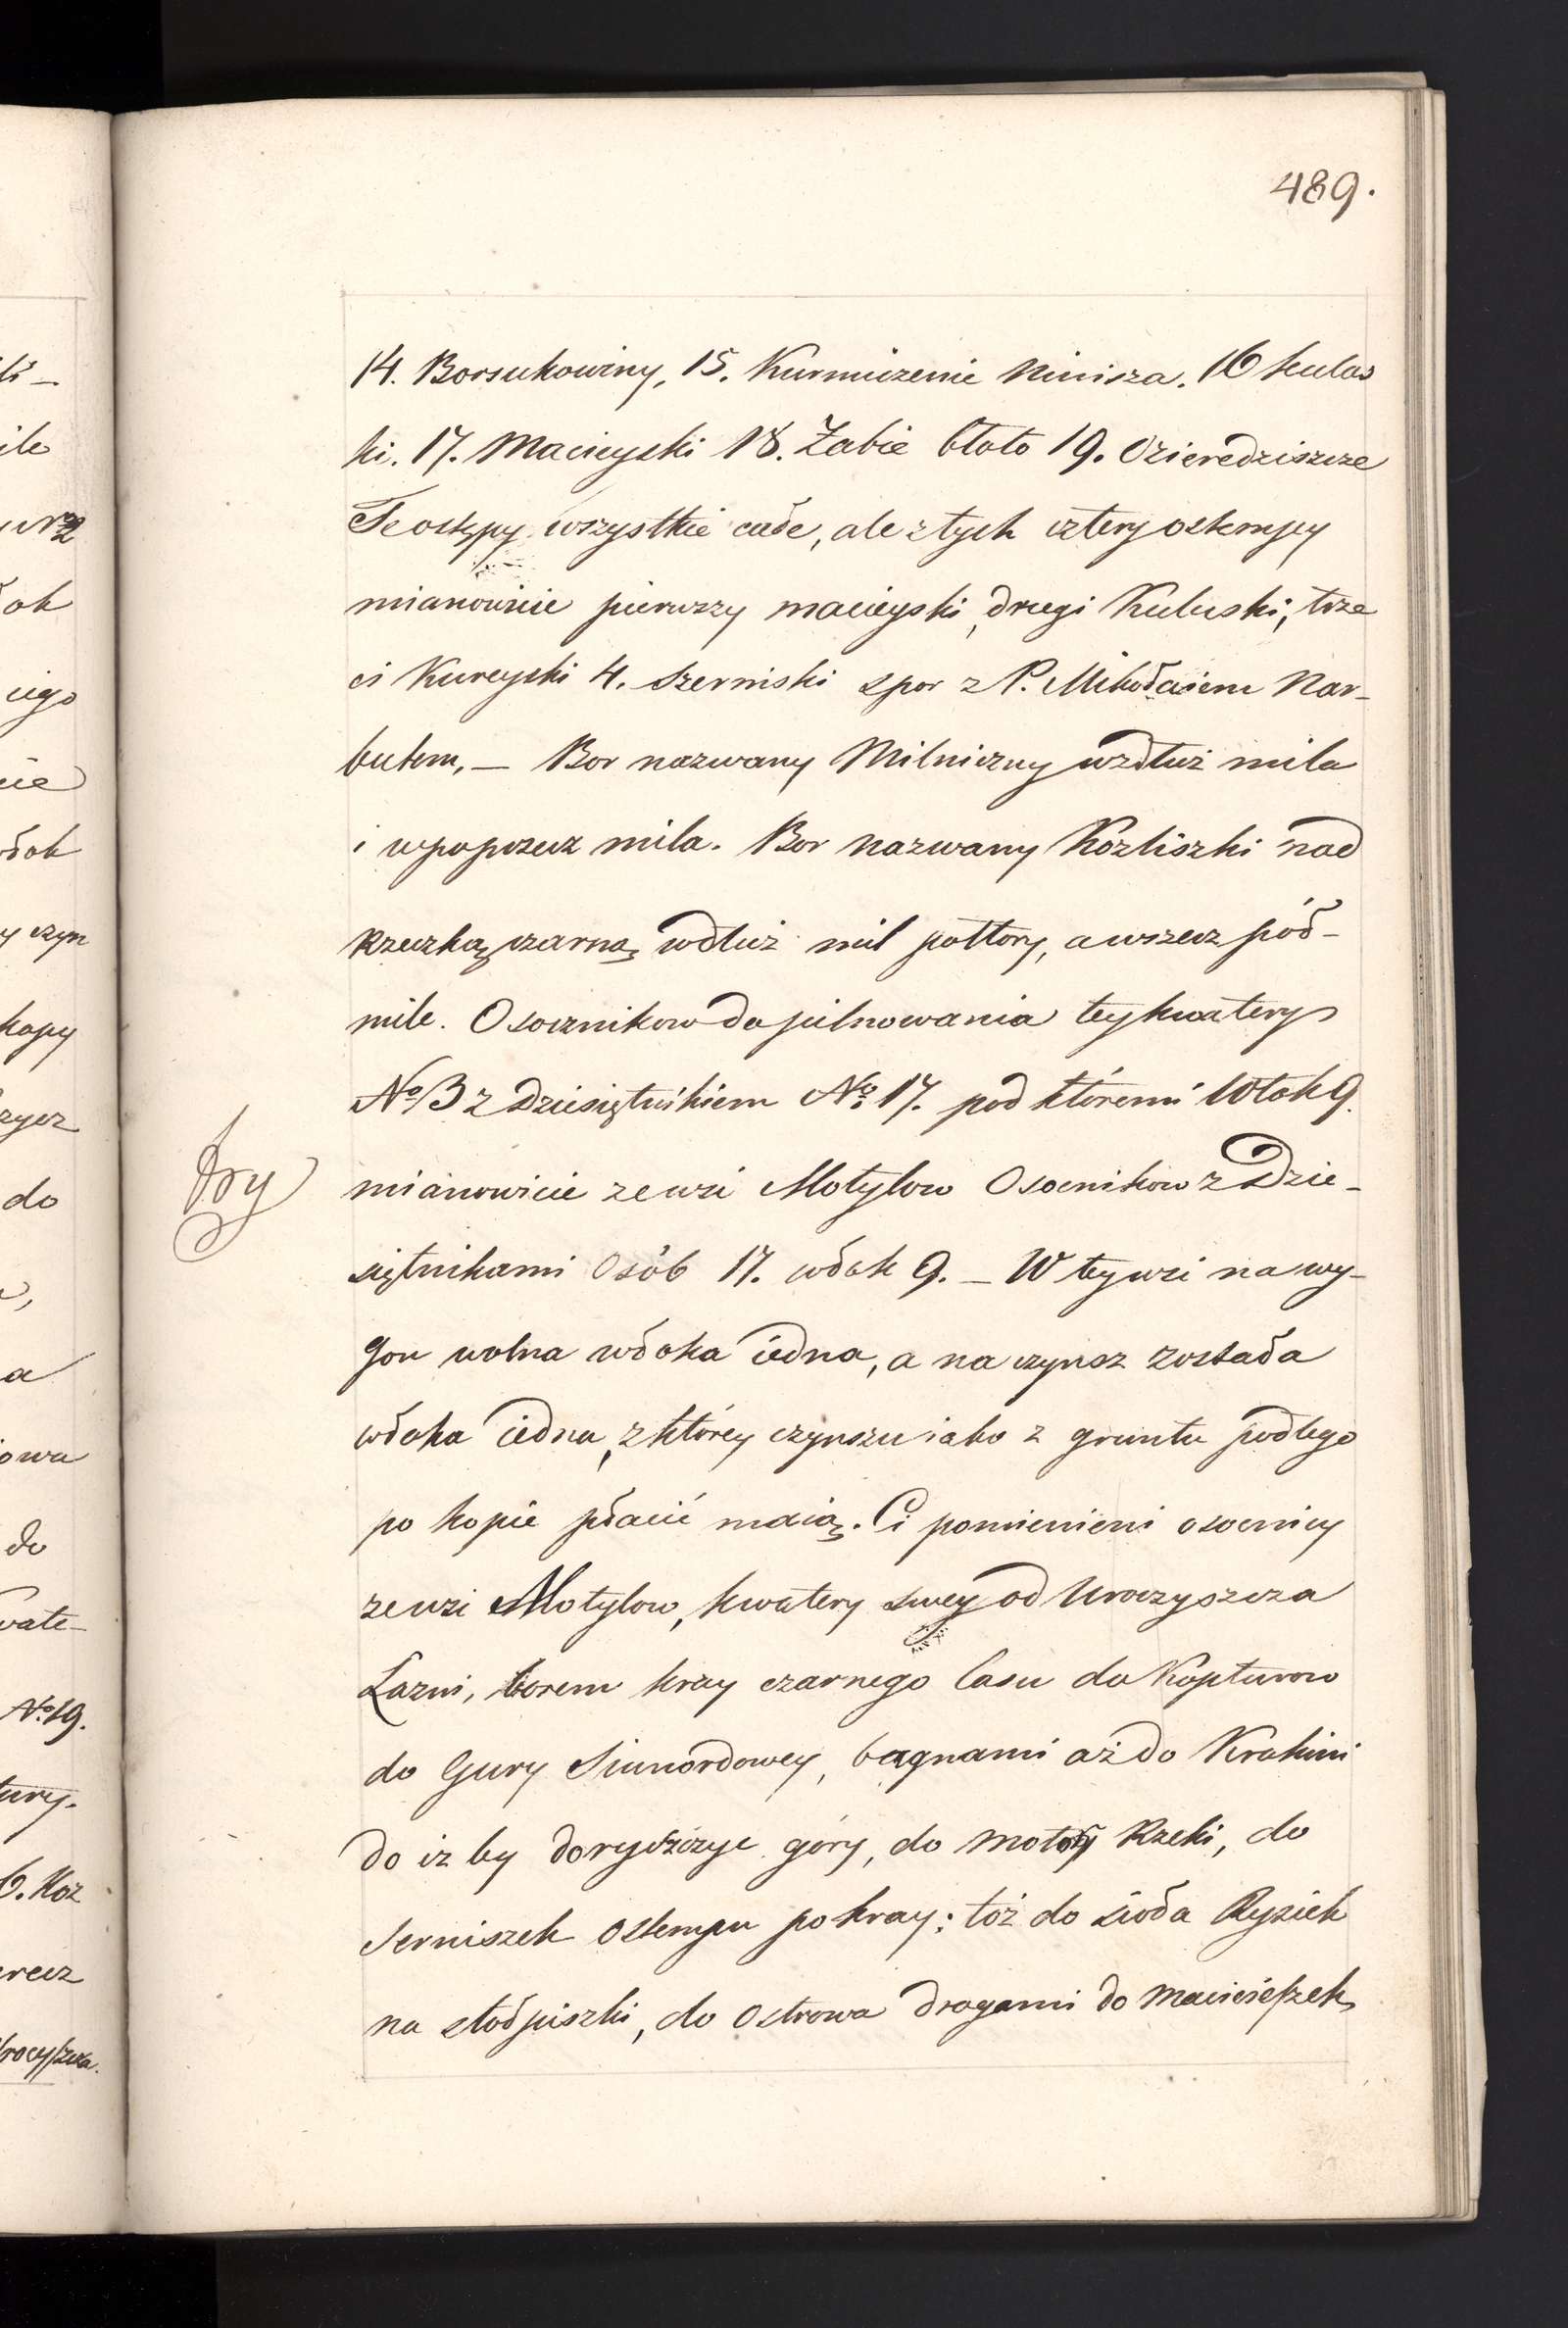 489.
14. Borsukowiny, 15. Kurmiczenie Ninisza. 16 kulas
ki. 17. Macieyski 18. Żabie błoto 19. Ozieredziszcze
Te ostępy wszystkie całe, ale z tych cztery ostempy
mianowicie pierwszy macieyski, drugi Kuluski, trze
ci Kureyski 4. Szerniski spor z P. Mikołaiem Nar-
butem, — Bor nazwany Milniczny wzdłuż mila
i wpoprzecz mila. Bor nazwany Kozliszki nad
Rzeczką czarną wdłuż mil połtory, a wszecz pół-
mile. Osocznikow do pilnowania tey kwatery
No 3 z Dziesiętnikiem No 17. pod któremi Włok 9.
mianowicie ze wsi Motylow Osocnikow z Dzie-
siętnikami Osób 17. włok 9. — W tey wsi na wy-
gon wolna włoka iedna, a na czynsz została
włoka iedna, z którey czynszu iako z gruntu podłego
po kopie płacić maią. Ci pomienieni osocnicy
ze wsi Motylow, kwatery swey od Uroczyszcza
Łazni, borem kray czarnego lasu do Kopturow
do Gury Siunordowey, bagnami aż do Krakini
do iz by góry, do Rzeki, do
Serniszek Ostempu po kray; toż do sioła Rysiek
na słołpiszki, do Ostrowa drogami do Macieieszek
try